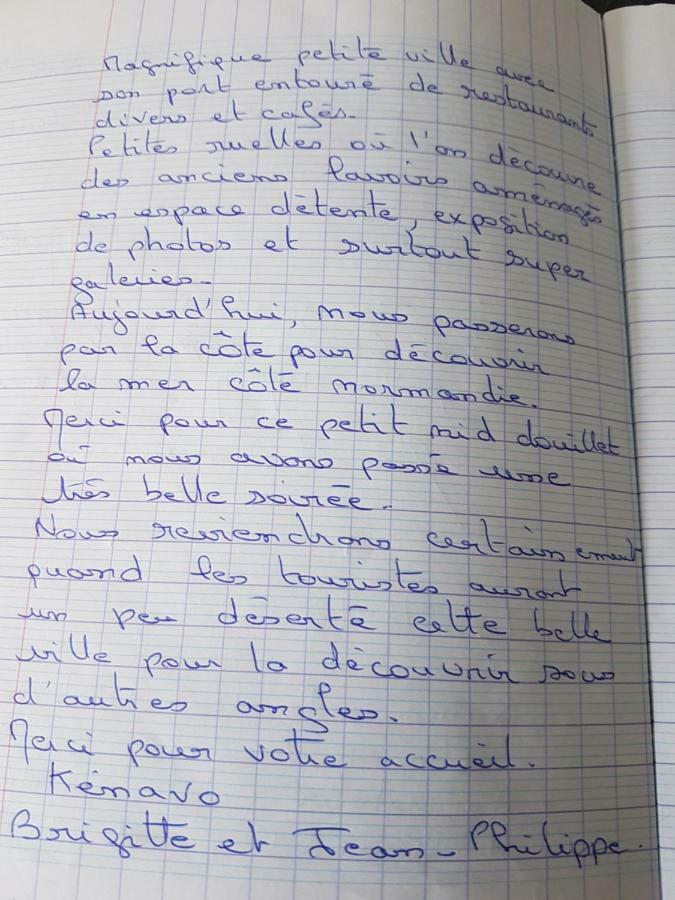 Magnifique petite ville avec
son port entouré de restaurants
divers et cafés.
Petites ruelles où l'on découvre
des anciens lavoirs aménagés
en espace détente, exposition
de photos et surtout super
galeries.
Aujourd'hui, nous passerons
par la côte pour découvrir
la mer côté normandie.
Merci pour ce petit nid douillet
où nous avons passé une
très belle soirée.
Nous reviendrons certainement
quand les touristes auront
un peu déserté cette belle
ville pour la découvrir sous
d'autres angles.
Merci pour votre accueil.
Kénavo
Brigitte et Jean-Philippe.